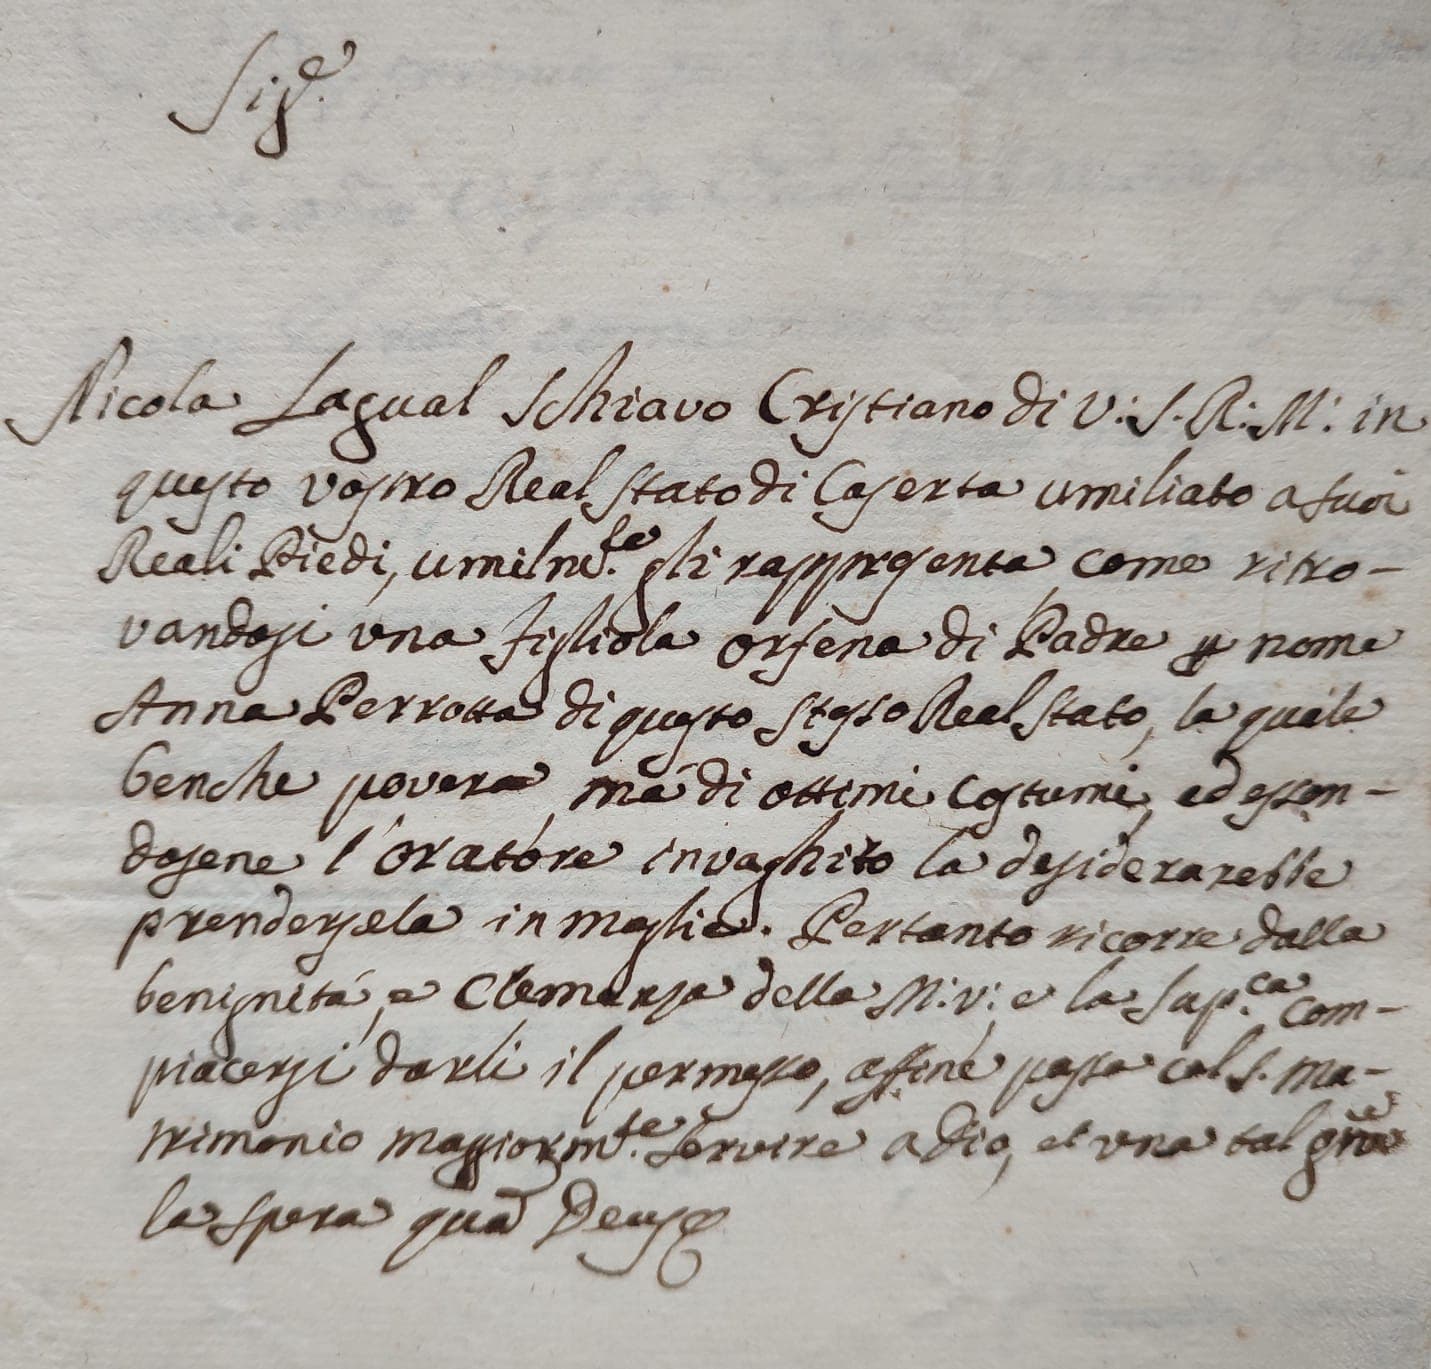 Sig.e
Nicola Lagual Schiavo Cristiano di V: S. R: M: in
questo vostro Real Stato di Caserta umiliato a suoi
Reali Piedi, umilm.te gli rappresenta come ritro-
vandosi una figliola orfena di Padre p nome
Anna Perrotta di questo stesso Real Stato, la quale
benche povera, má di ottimi costumi, ed essen-
dosene l'oratore invaghito la desiderarebbe
prendersela in moglie. Pertanto ricorre dalla
benignitá, e Clemenza della M: V:, e la sup.ca com-
piacersi darli il permesso, affine possa col S. Ma-
trimonio maggiorm.te servire a Dio, et una tal gr̃a
la spera qua Deus